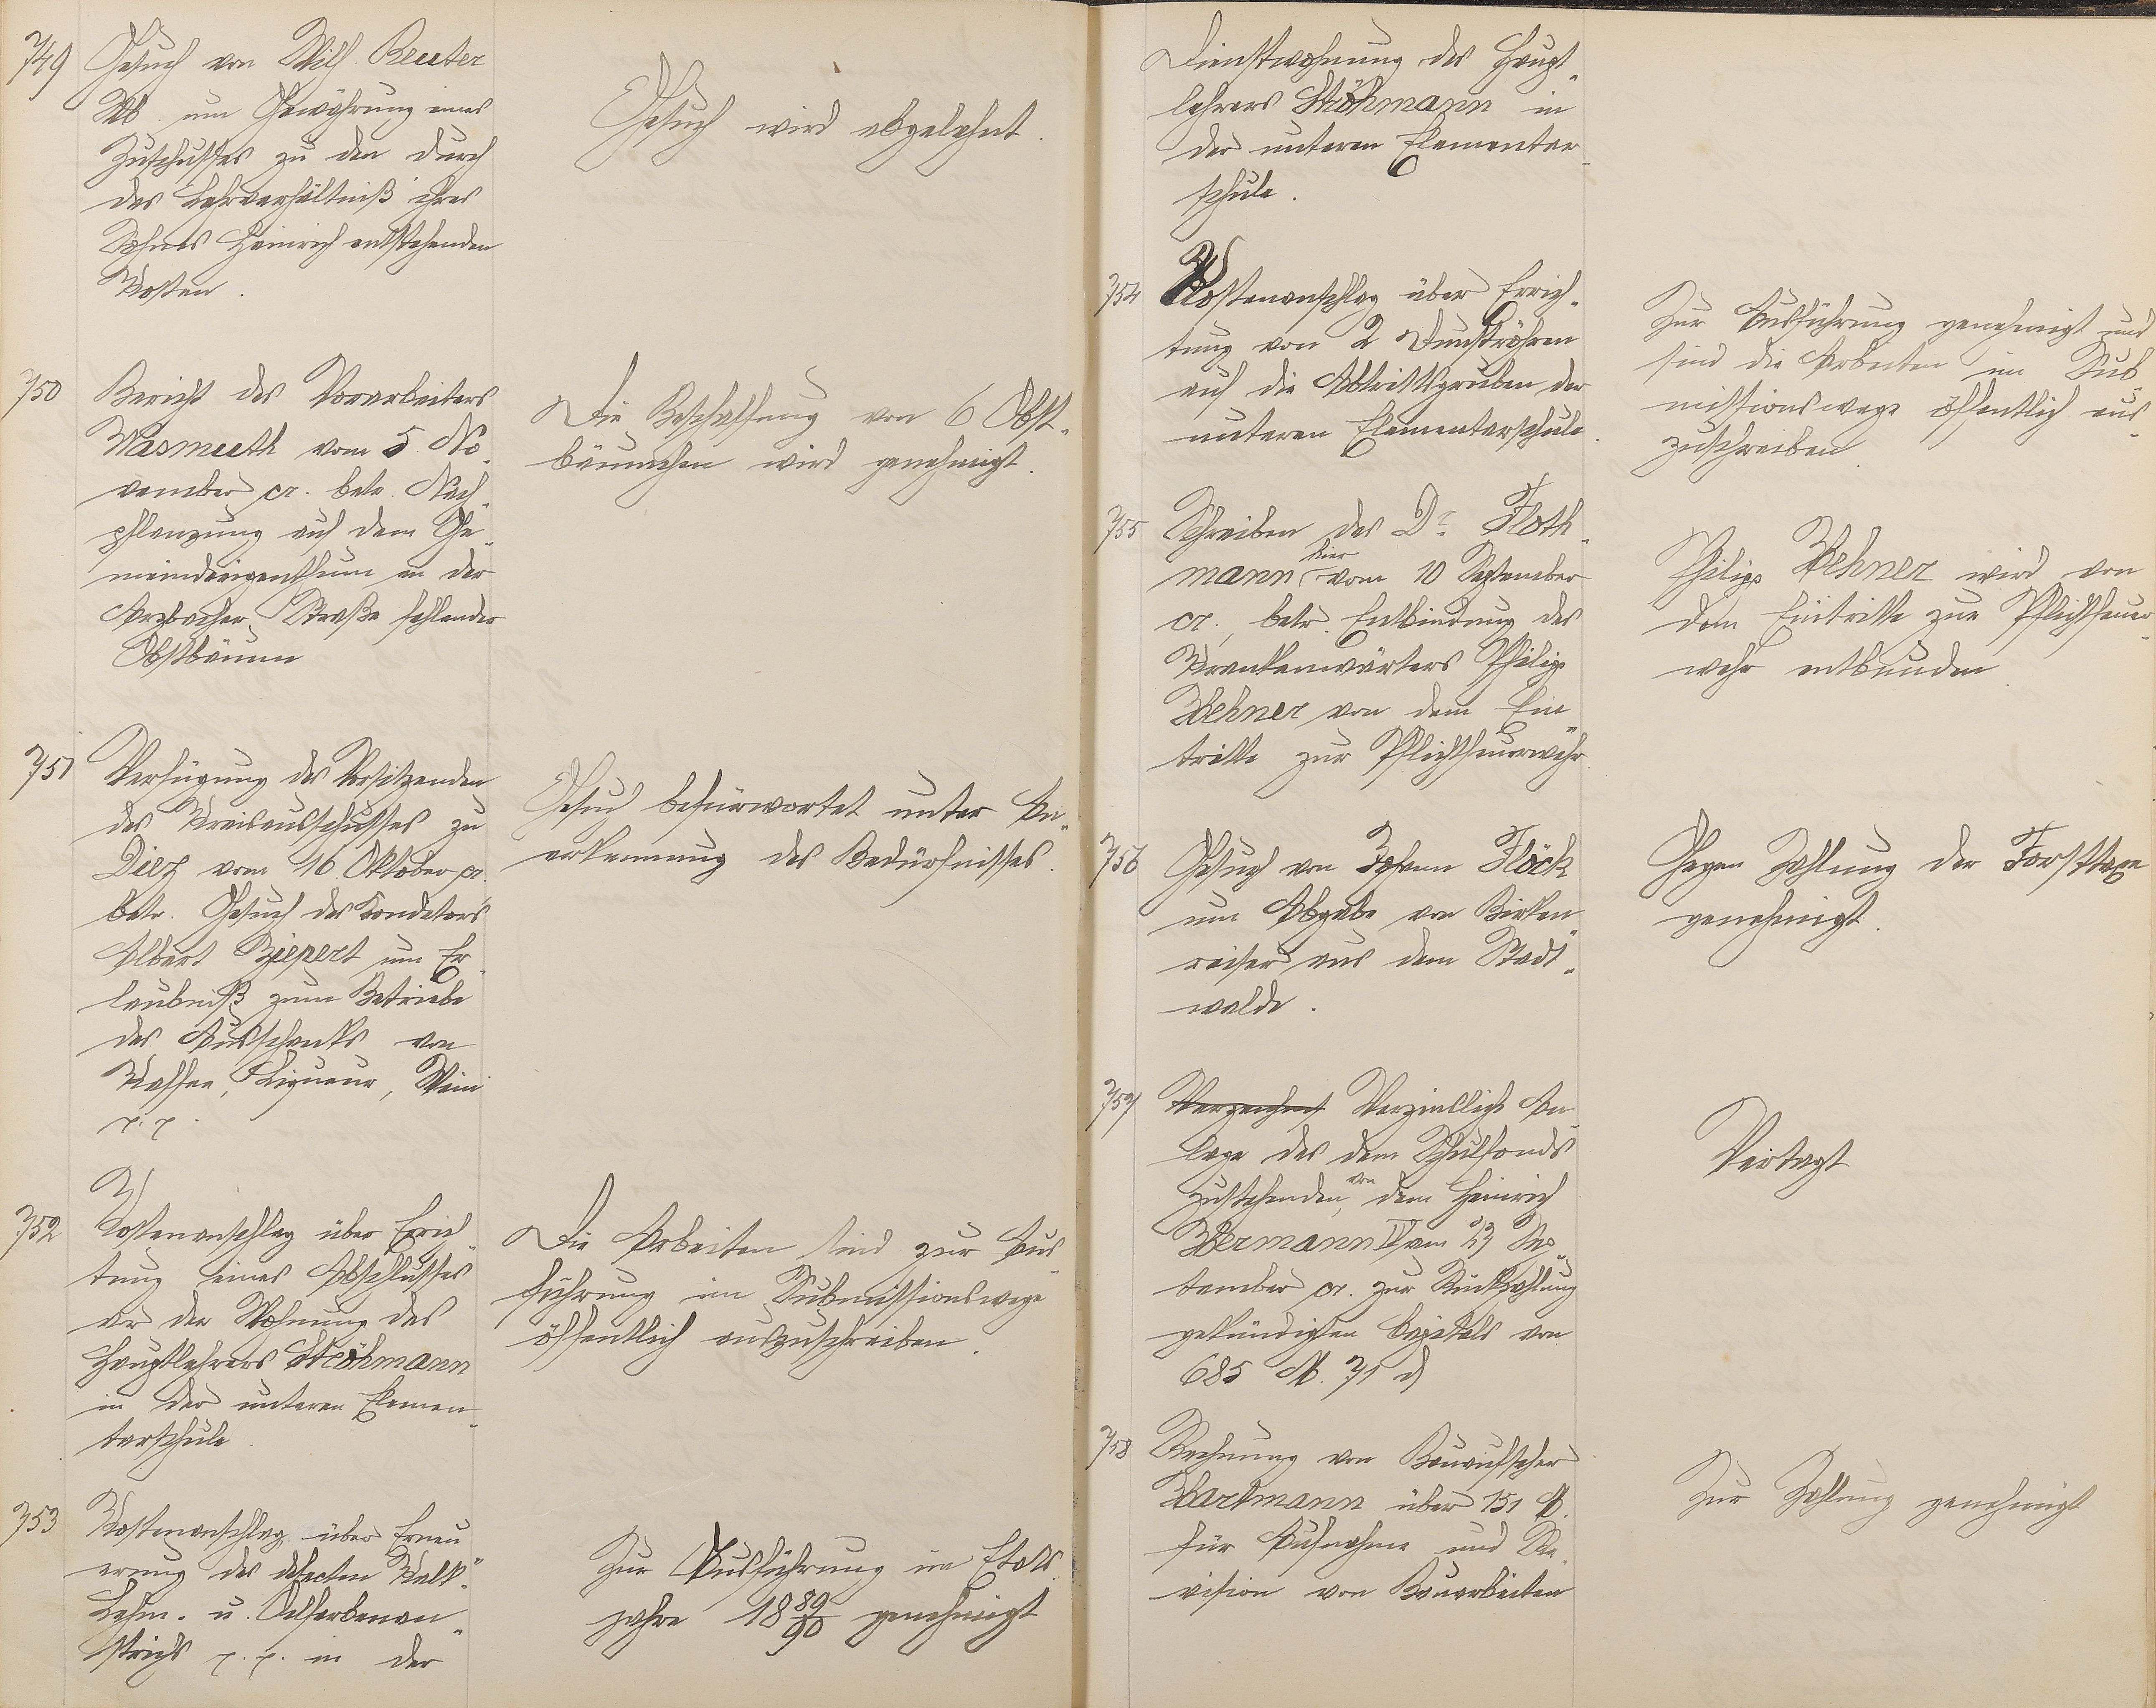 749
Gesuch von Wilh. Reuter
Wb. um Gewährung eines
Zuschusses zu den durch
das Lehrverhältniß ihres
Sohnes Heinrich entstehenden
Kosten.
Gesuch wird abgelehnt.
750
Bericht des Vorarbeiters
Wasmuth vom 5. No-
vember cr. betr. Nach-
pflanzung auf dem Ge-
meindeeigenthum an der
Arzbacher Straße fehlender
Obstbäume
Die Beschaffung von 6 Obst-
bäumchen wird genehmigt.
751
Verfügung des Vorsitzenden
des Kreisausschusses zu
Diez vom 16. Oktober cr.
betr. Gesuch des Konditors
Albert Biepert um Er-
laubniß zum Betriebe
des Ausschanks von
Kaffee, Liqueur, Wein
p. p.
Gesuch befürwortet unter An-
erkennung des Bedürfnisses.
752
Kostenanschlag über Errich-
tung eines Abschlusses
vor der Wohnung des
Hauptlehrers Ströhmann
in der unteren Elemen-
tarschule
Die Arbeiten sind zur Aus-
führung im Submissionswege
öffentlich auszuschreiben.
753
Kostenanschlag über Erneu-
erung des defecten Kalk-
Lehm- u. Oelfarbenan-
strichs p. p. in der
Zur Ausführung im Etats-
jahre 1889/90 genehmigt
Dienstwohnung des Haupt-
lehrers Ströhmann in
der unteren Elementar-
schule.
754
Kostenanschlag über Errich-
tung von 2 Dunströhren
auf die Abtrittsgruben der
unteren Elementarschule.
Zur Ausführung genehmigt und
sind die Arbeiten im Sub-
missionswege öffentlich aus-
zuschreiben
755
Schreiben des Dr. Floth-
mann hier vom 10 September
cr., betr. Entbindung des
Krankenwärters Philipp
Wehner von dem Ein-
tritte zur Pflichtfeuerwehr.
Philipp Wehner wird von
dem Eintritte zur Pflichtfeuer-
wehr entbunden
756
Gesuch von Johann Flöck
um Abgabe von Birken-
reiser aus dem Stadt-
walde.
Gegen Zahlung der Forsttaxe
genehmigt.
757
Verzinslich An-
lage des dem Schulfonds
zustehenden, von dem Heinrich
Hermann IV am 23 Sep-
tember cr. zur Rückzahlung
gekündigten Capitals von
685 M. 71 d
Vertagt
758
Rechnung von Bauaufseher
Hartmann über 151 M.
für Aufnahme und Re-
vision von Bauarbeiten
Zur Zahlung genehmigt